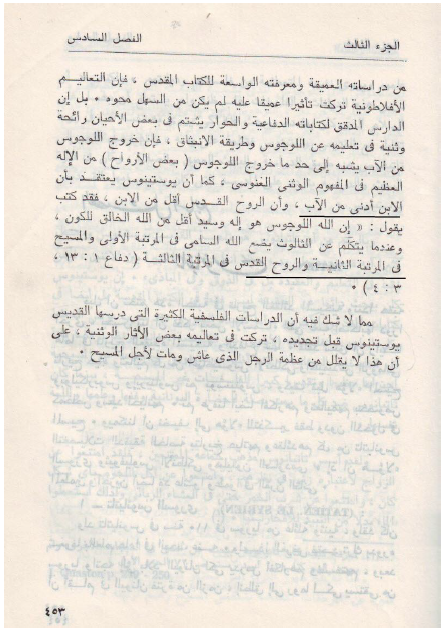 الجزء الثالث
الفصل السادس
من دراساته العميقة ومعرفته الواسعة للكتاب المقدس ، فإن التعاليم
الأفلاطونية تركت تأثيرا عميقا عليه لم يكن من السهل محوه ٠ بل إن
الدارس المدقق لكتاباته الدفاعية والحوار يشتم فى بعض الأحيان رائحة
وثنية فى تعليمه عن اللوجوس وطريقة الانبثاق ، فإن خروج اللوجوس
من الآب يشبه إلى حد ما خروج اللوجوس ( بعض الأرواح ) من الإله
العظيم فى المفهوم الوثنى الغنوسى ، كما أن يوستينوس يعتقد بأن
الابن أدنى من الآب ، وأن الروح القدس أقل من الابن ، فقد كتب
يقول : « إن الله اللوجوس هو إله وسيد أقل من الله الخالق للكون ،
وعندما يتكلم عن الثالوث يضع الله السامى فى المرتبة الأولى والمسيح
فى المرتبة الثانية والروح القدس فى المرتبة الثالثة ( دفاع ١ : ٩٣ ،
٣ : ٤ ) ٠
مما لا شك فيه أن الدراسات الفلسفية الكثيرة التى درسها القديس
يوستينوس قبل تجديده ، تركت فى تعاليمه بعض الآثار الوثنية ، على
أن هذا لا يقلل من عظمة الرجل الذى عاش ومات لأجل المسيح ٠
٤٥٣